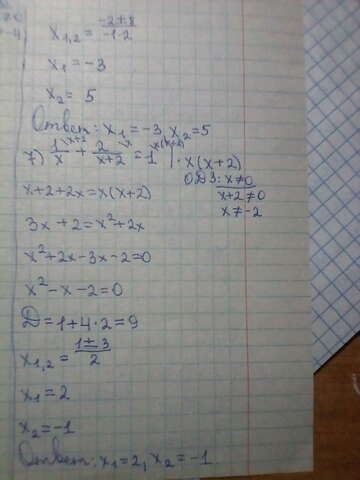 x₁,₂ = -2±8 / -1·2
x₁ = -3
x₂ = 5
Ответ: x₁ = -3, x₂ = 5
7) 1/x \x+2 + 2/x+2 \x = 1 \x(x+2) | · x(x+2)
ОДЗ: x≠0
x+2+2x = x(x+2)
x+2≠0
x≠-2
3x+2 = x²+2x
x²+2x-3x-2=0
x²-x-2=0
D = 1+4·2=9
x₁,₂ = 1±3 / 2
x₁ = 2
x₂ = -1
Ответ: x₁=2, x₂ = -1